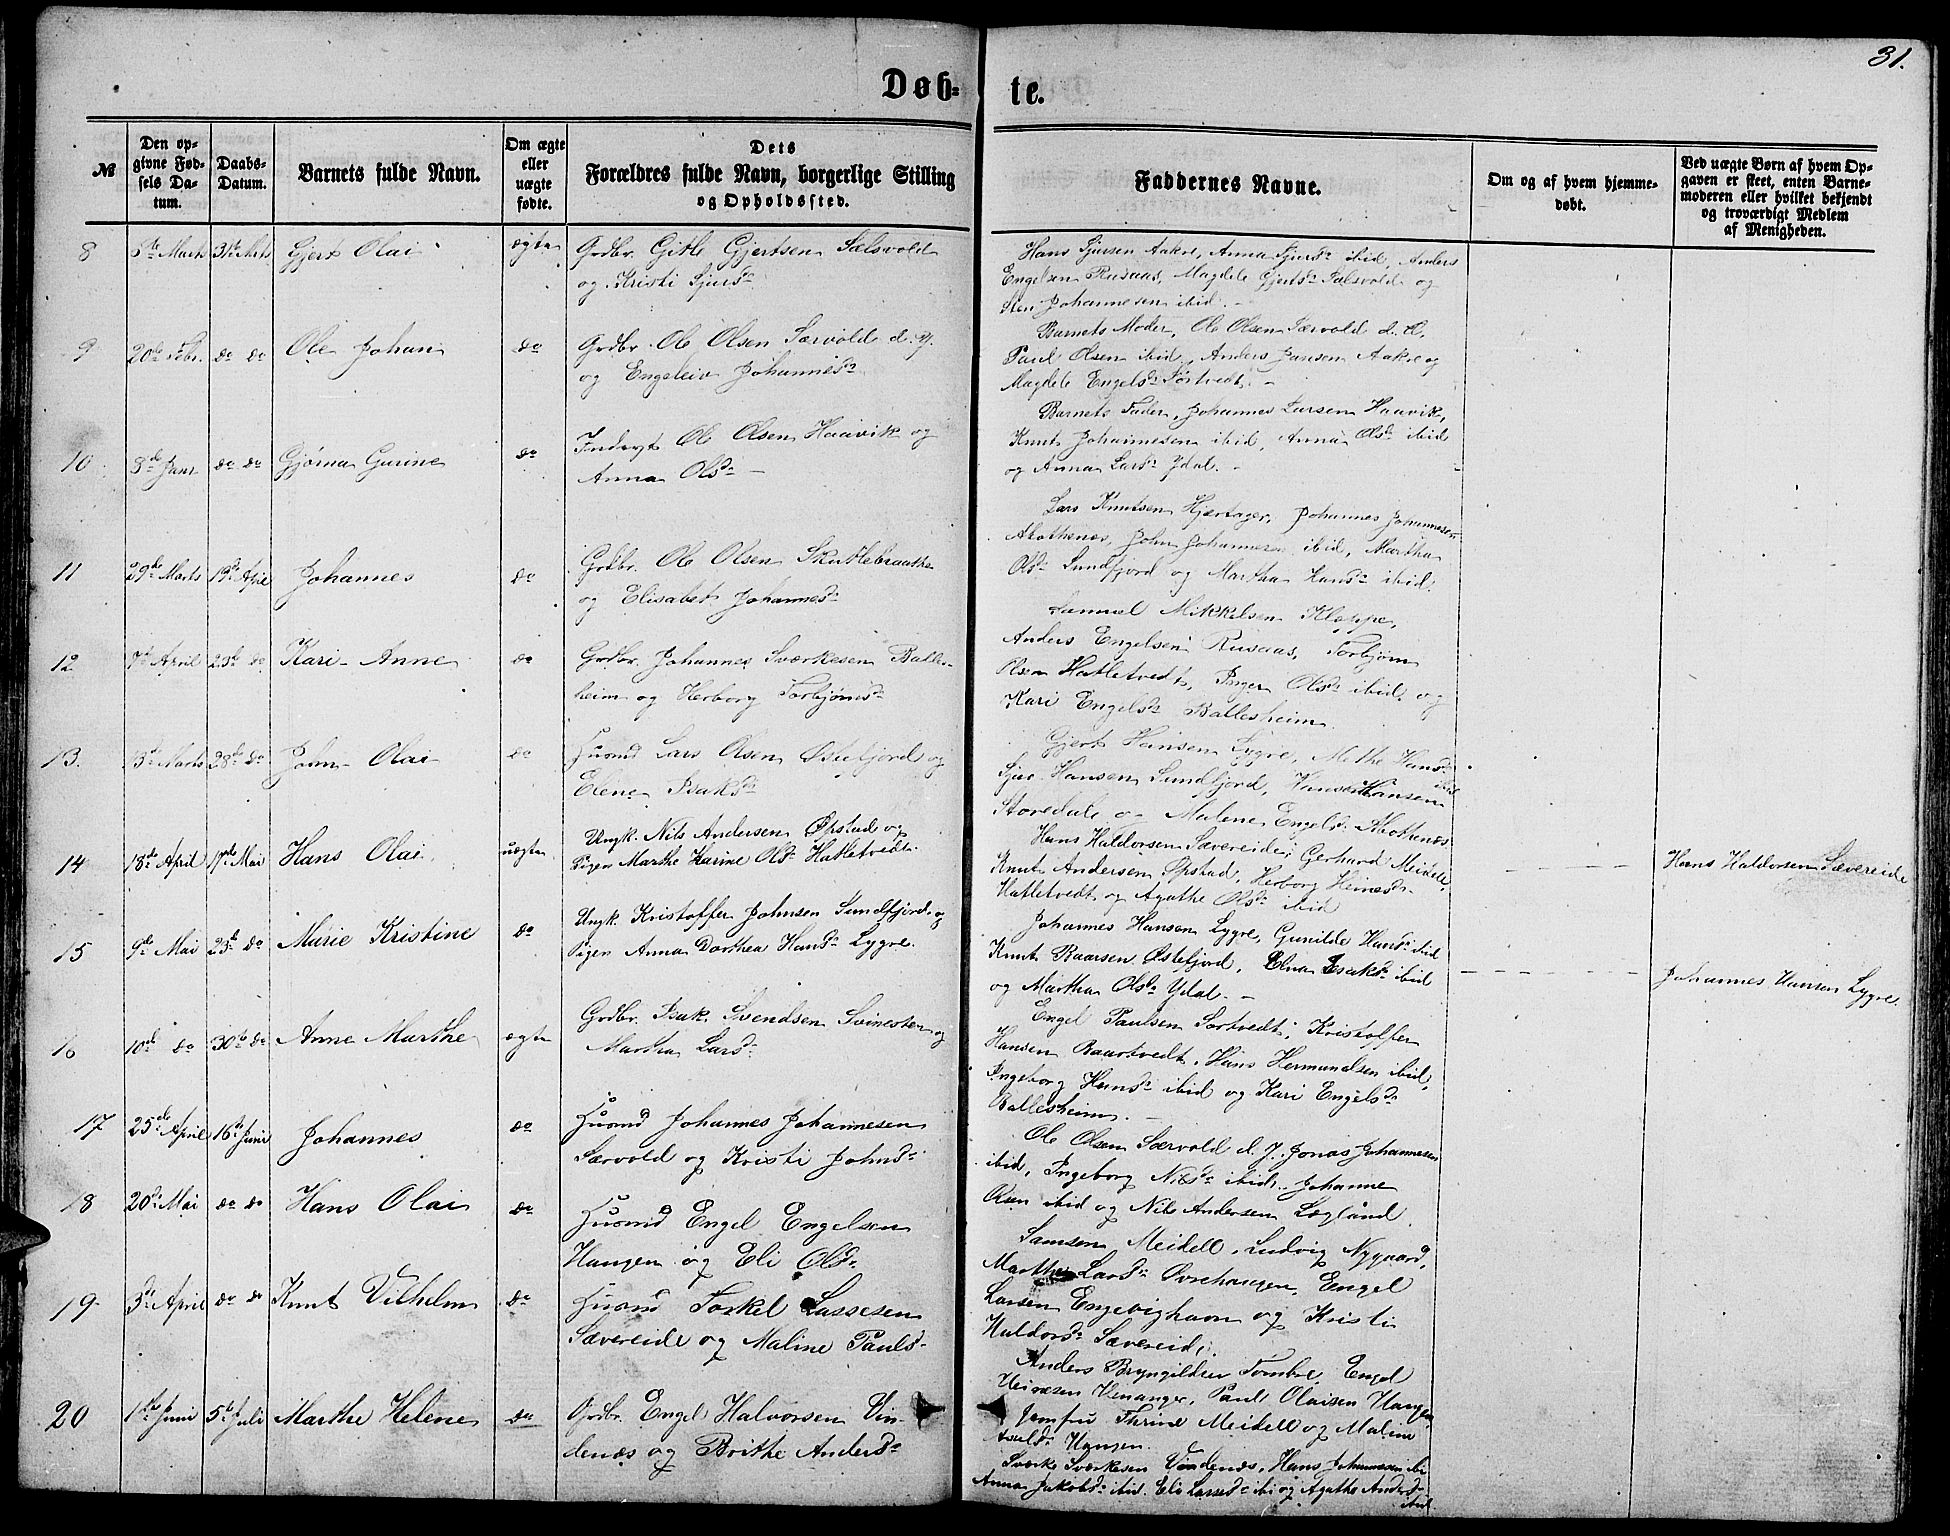 31.
Døb-
te.
№
Den op-
givne Fød-
sels Da-
tum.
Daabs-
Datum.
Barnets fulde Navn.
Om ægte
eller
uægte
fødte.
Dets
Forældres fulde Navn, borgerlige Stilling
og Opholdssted.
Faddernes Navne.
Om og af hvem hjemme-
døbt.
Ved uægte Børn af hvem Op-
gaven er skeet, enten Barne-
moderen eller hvilket bekjendt
og troværdigt Medlem
af Menigheden.
8 5te Marts 31te Mrts Gjert Olai ægte Grdbr. Gitle Gjertsen Sælsvold
og Kristi Sjursd.
Hans Sjursen Aakre, Anna Sjursd. ibid, Anders
Engelsen Rusaas, Magdele Gjertsd. Sælsvold og
Sten Johannesen ibid. -
9 20de Febr. do do Ole Johan do Grdbr. Ole Olsen Særvold d. y.
og Engeleiv Johannesd.
Barnets Moder, Ole Olsen Særvold d. Æ,
Paul Olsen ibid, Anders Jansen Aakre og
Magdele Engelsd. Tørtvedt. -
10 3de Janr do do Gjørna Gurine do Inderst Ole Olsen Haavik og
Anna Olsd. -
Barnets Fader, Johannes Larsen Haavik,
Knut Johannesen ibid, Anna Olsd. ibid
og Anna Larsd. Ydal. -
11 29de Marts 19de April Johannes do Grdbr. Ole Olsen Skutlebraathe
og Elisabet Johannesd.
Lars Knutsen Hjærtager, Johannes Johannesen
Axothenes, John Johannesen ibid, Martha
Olsd. Sundfjord og Martha Hansd. ibid.
12 7de April 25de do Kari Anne do Grdbr. Johannes Sværkesen Balles-
heim og Herborg Torbjørnsd.
Samuel Mikkelsen Kloppe,
Anders Engelsen Rusaas, Torbjørn
Olsen Hatletvedt, Inger Olsd. ibid. og
Kari Engelsd. Ballesheim.
13. 13de Marts 28de do John Olai do Husmd Lars Olsen Østefjord og
Elene Isaksd.
Gjert Hansen Lygre, Methe Hansd. ibid
Sjur Hansen Sundfjord, Hans Hansen
Staredale og Malene Engelsd. Skothenes
14 13de April 17de Mai Hans Olai uægte Ungk. Nils Andersen Øpstad og
Pigen Marthe Karine Olsd. Hatletvedt.
Hans Haldorsen Sævereide, Gerhard Meidell,
Knut Andersen Øpstad, Herborg Heinesd.
Hatletvedt og Agathe Olsd. ibid
Hans Haldorsen Sævereide
15 9de Mai 25de do Marie Kristine do Ungk. Kristoffer Johnsen Sundfjord og
Pigen Anna Dorthea Hansd. Lygre.
Johannes Hansen Lygre, Gunilde Hansd. ibid
Knut Baarsen Østefjord, Elna Isaksd. ibid
og Martha Olsd. Ydal. -
Johannes Hansen Lygre.
16 10de do 30te do Anne Marthe ægte Grdbr. Isak Svendsen Svinesten og
Martha Larsd.
Engel Paulsen Sortvedt, Kristoffer
Hansen Baartvedt, Hans Hermundsen ibid,
Ingeborg Hansd. ibid og Kari Engelsd.
Ballesheim. -
17 25de April 16de Juni Johannes do Husmd Johannes Johannesen
Særvold og Kristi Johnsd.
Ole Olsen Særvold d. Y. Jonas Johannesen
ibid, Ingeborg Nilsd. ibid, Johanne
Olsen ibid og Nils Andersen Løgland.
18 20de Mai do do Hans Olai do Husmd Engel Engelsen
Haugen og Eli Olsd.
Samsen Meidell, Ludvig Nygaard,
Marthe Larsd. Øvrehaugen, Engel
Larsen Engevighavn og Kristi
Haldorsd. Sævereide.
19. 3de April do do Knut Vilhelm do Husmd Torkel Lassesen
Sævereide og Maline Paulsd.
Anders Bryngildsen Tombre, Engel
Heinesen Venanger, Paul Olaisen Haugen
Jomfru Thrine Meidell og Maline
Haugen.
20 1ste Juni 5te Juli Marthe Helene do Grdbr. Engel Halvorsen Vin-
denæs og Brithe Andersd.
Sværke Sværkesen Vindenæs, Hans Johannessen ibi
Anna Jakobsd. ibid. Eli Lassesd. ibi og Agathe Andersd.
ibid.